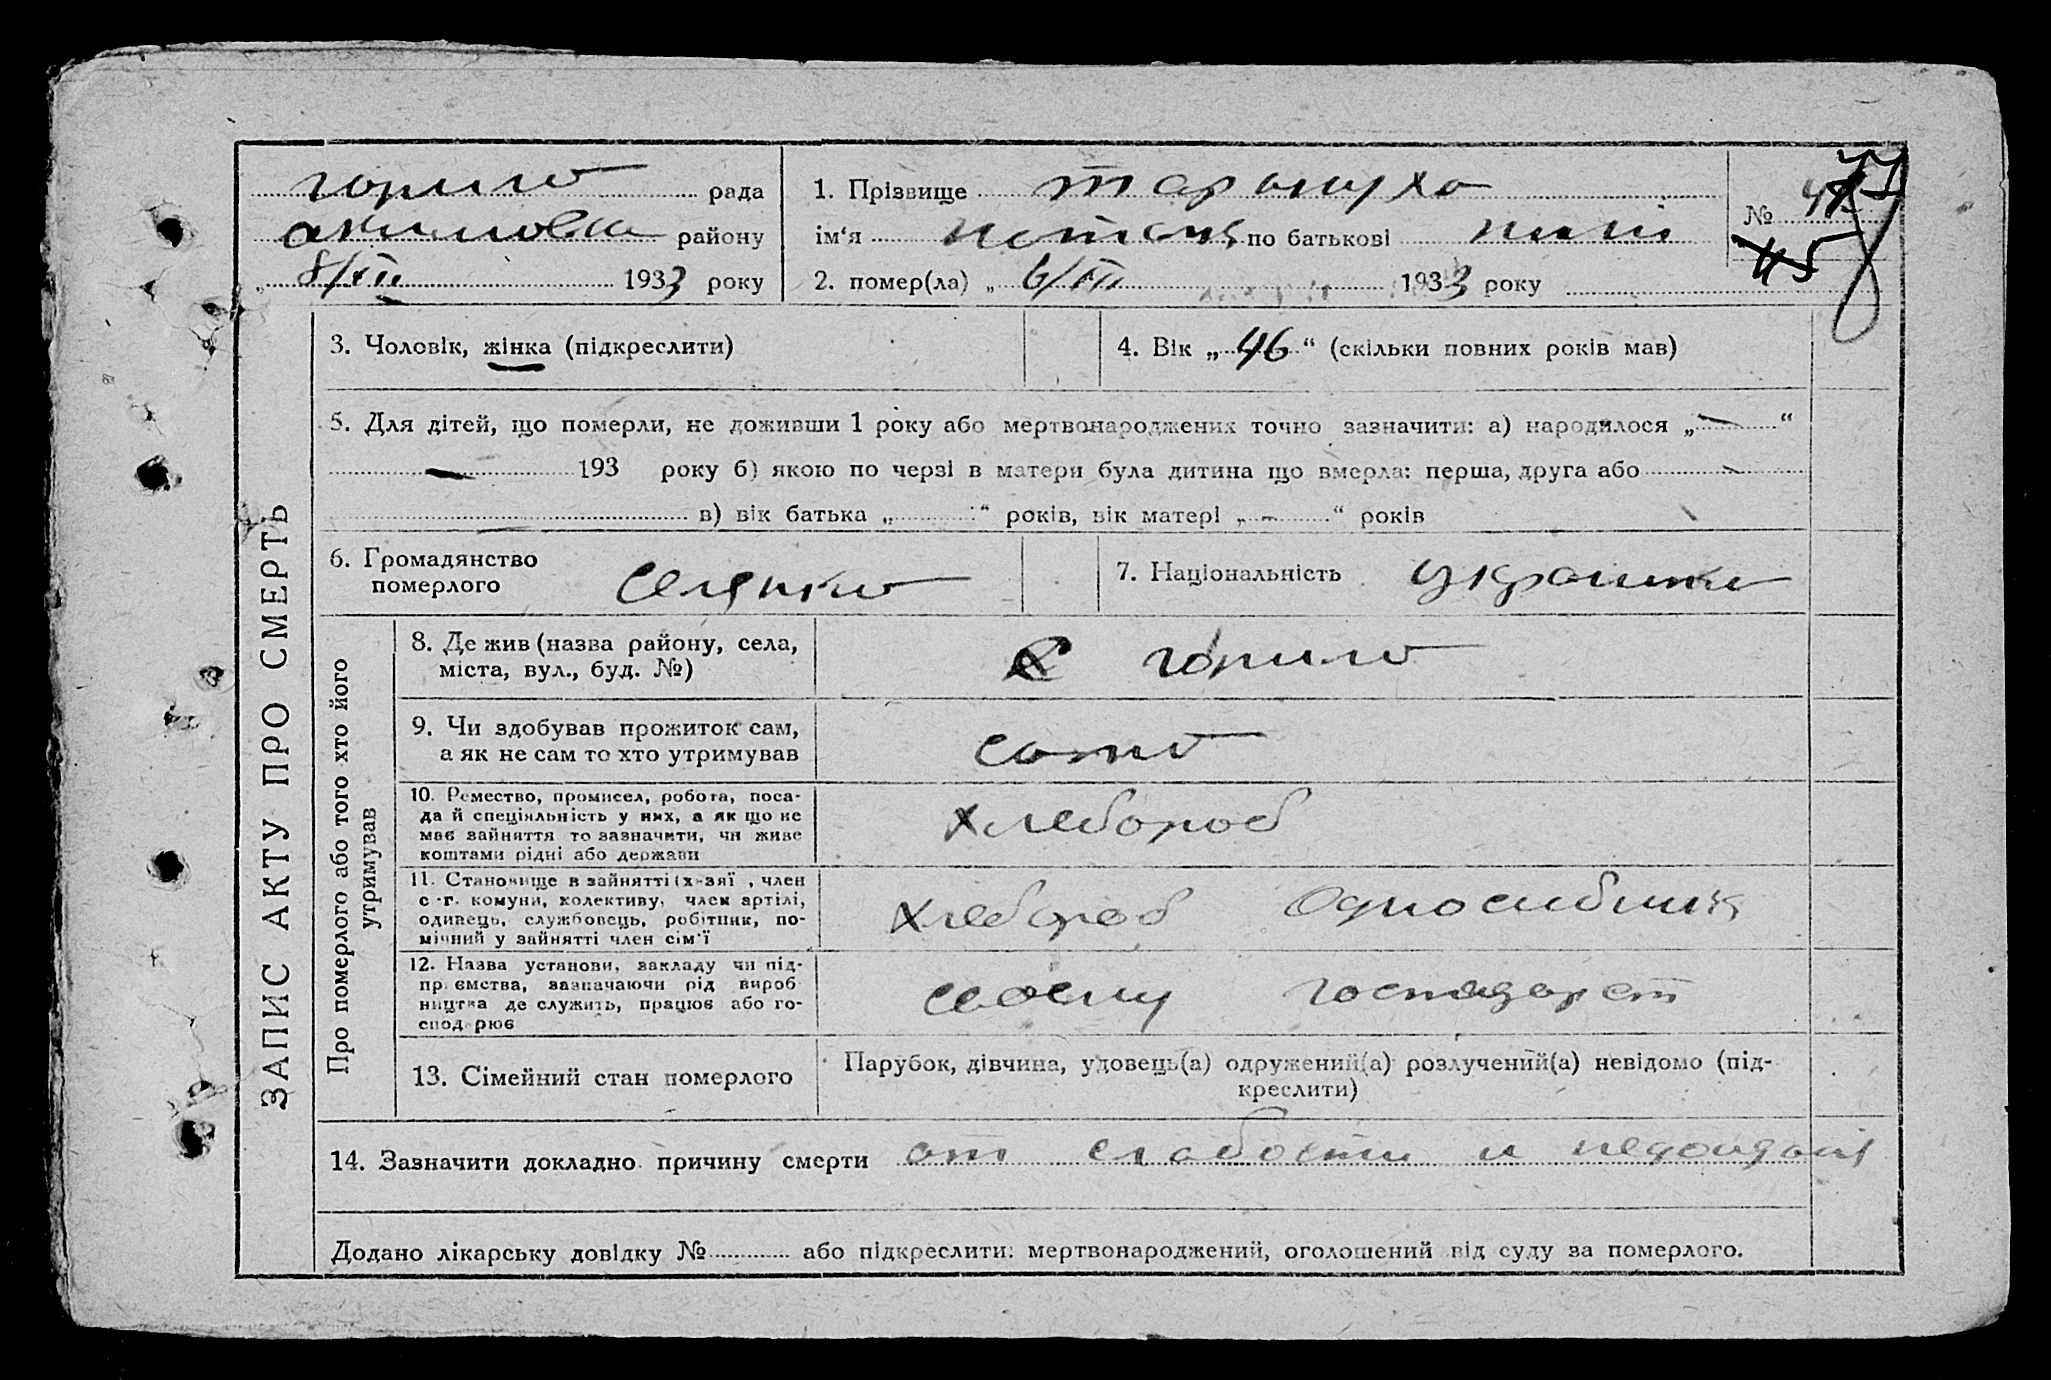 рада
району
„ 8/XII 1933 року
1. Прізвище тарануха
ім'я по батькові
2. помер(ла) „ 6/XII 1933 року
№
45
3. Чоловік, жінка (підкреслити)
4. Вік „ 46 “ (скільки повних років мав)
5. Для дітей, що померли, не доживши 1 року або мертвонароджених точно зазначити: а) народилося „ — “
— 193 року б) якою по черзі в матери була дитина що вмерла: перша, друга або —
в) вік батька „ “ років, вік матері „ - “ років
6. Громадянство
померлого
селянка
7. Національність украинка
ЗАПИС АКТУ ПРО СМЕРТЬ
Про померлого або того хто його
утримував
8. Де жив (назва району, села,
міста, вул., буд. №)
9. Чи здобував прожиток сам,
а як не сам то хто утримував
сама
10. Ремество, промисел, робота, поса-
да й спеціяльність у них, а як що не
має зайняття то зазначити, чи живе
коштами рідні або держави
хлебороб
11. Становище в зайнятті (х-зяї , член
с.-г. комуни, колективу, член артілі,
одинець, службовець, робітник, по-
мічний у зайнятті член сім'ї
хлебороб Односибник
12. Назва установи, закладу чи під-
приємства, зазначаючи рід вироб
ництва де служить, працює або го-
сподарює
своему господарст
13. Сімейний стан померлого
Парубок, дівчина, удовець(а) одружений(а) розлучений(а) невідомо (під-
креслити)
14. Зазначити докладно причину смерти от слабости и недоидания
Додано лікарську довідку № або підкреслити: мертвонароджений, оголошений від суду за померлого.